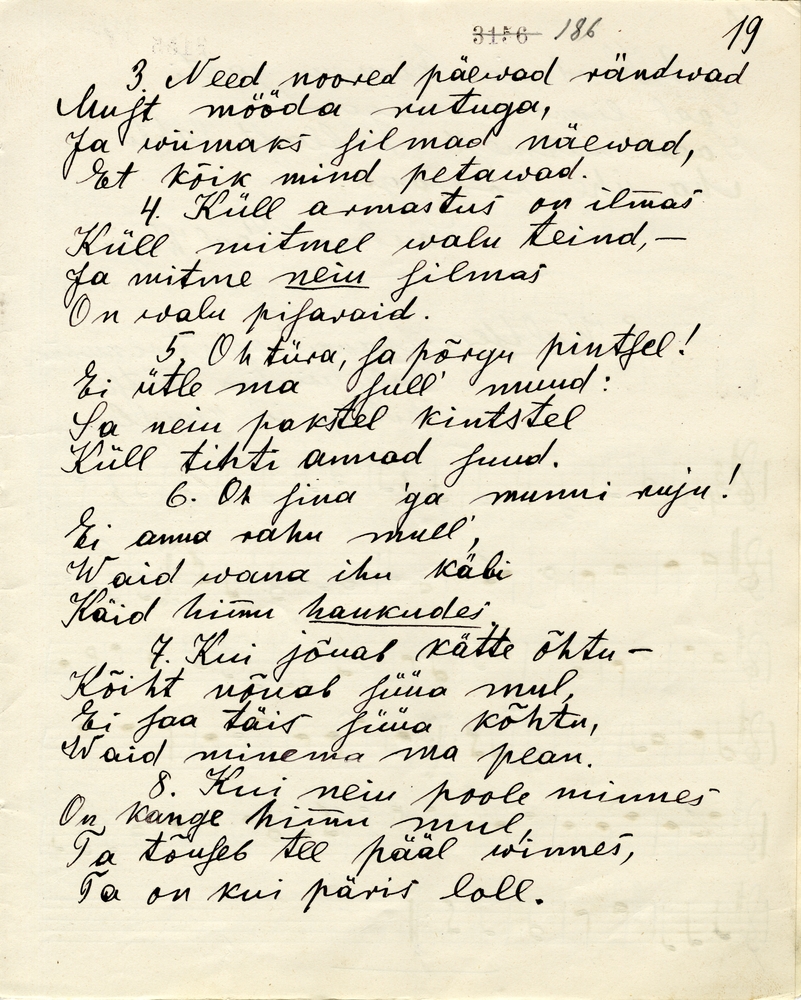 3156 186 19
3. Need noored päewad rändwad
Must mööda rutuga,
Ja wiimaks silmad näewad,
Et kõik mind petawad.
4. Küll armastus on ilmas
Küll mitmel walu teind,—
Ja mitme neiu silmas
On walu pisaraid.
5. Oh türa, sa põrgu pintsel!
Ei ütle ma sull' muud:
Sa neiu pakstel kintstel
Küll tihti annad suud.
6. Oh sina 'ga munni ruju!
Ei anna rahu mull',
Waid wana ihu käbi
Käid him̅u haukudes.
7. Kui jõuab kätte õhtu—
Kõiht nõuab süüa mul,
Ei saa täis süüa kõhtu,
Waid minema ma pean.
8. Kui neiu poole minnes
On kange him̅u mul,
Ta tõuseb tee pääl winnes,
Ta on kui päris loll.